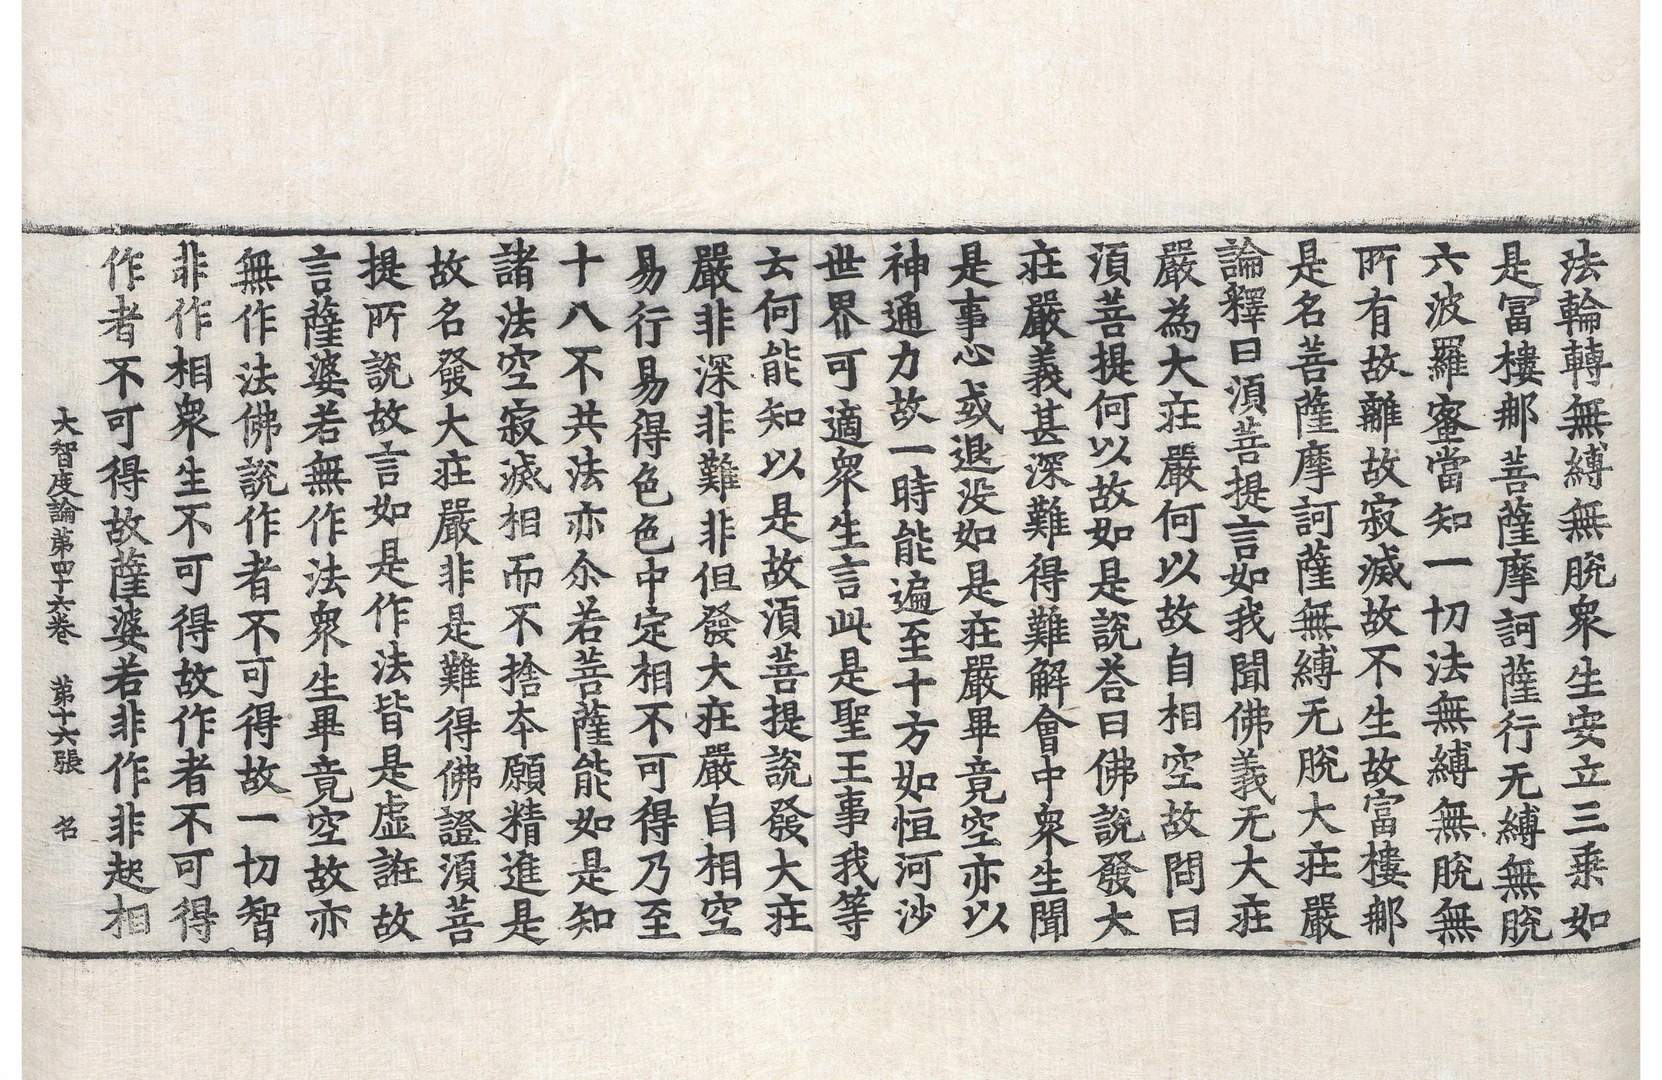 法輪轉無縛無脫衆生安立三乘如
是冨樓那菩薩摩訶薩行无縛無脫
六波羅蜜當知一切法無縛無脫無
所有故離故寂滅故不生故富樓那
是名菩薩摩訶薩無縛无脫大莊嚴
論釋曰湏菩提言如我聞佛義无大莊
嚴為大莊嚴何以故自相空故問曰
湏菩提何以故如是說荅曰佛說發大
莊嚴義甚深難得難解會中衆生聞
是事心或退没如是莊嚴畢竟空亦以
神通力故一時能遍至十方如恒河沙
世界可適衆生言此是聖王事我等
云何能知以是故湏菩提說發大莊
嚴非深非難非但發大莊嚴自相空
易行易得色色中定相不可得乃至
十八不共法亦尒若菩薩能如是知
諸法空寂滅相而不捨夲願精進是
故名發大莊嚴非是難得佛證湏菩
提所說故言如是作法皆是虛誑故
言薩婆若無作法衆生畢竟空故亦
無作法佛說作者不可得故一切智
非作相衆生不可得故作者不可得
作者不可得故薩婆若非作非起相
大智度論第四十六卷　第十六張　名